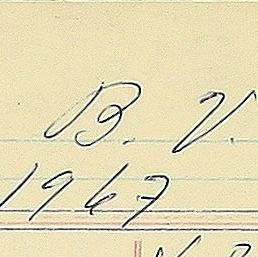 B. V.
1967